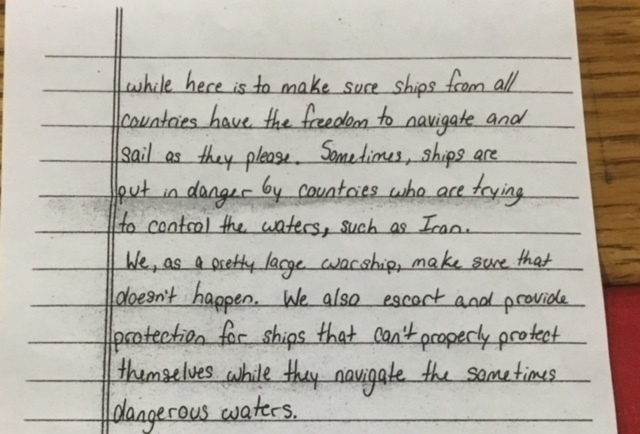 while here is to make sure ships from all
countries have the freedom to navigate and
sail as they please. Sometimes, ships are
put in danger by countries who are trying
to control the waters, such as Iran.
We, as a pretty large warship, make sure that
doesn't happen. We also escort and provide
protection for ships that can't properly protect
themselves while they navigate the sometimes
dangerous waters.